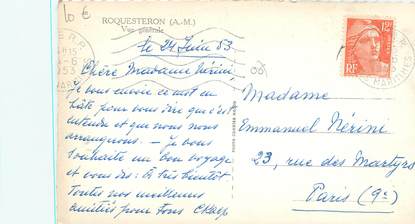 10 €
ROQUESTERON (A.-M.)
Vue générale
le 24 Juin 53
Chère Madame Nérini
Je vous envoie ce mot en
hâte pour vous dire que c'est
entendu et que nous nous
arrangerons. — Je vous
souhaite un bon voyage
et vous dis: à très bientôt
Toutes nos meilleures
amitiés pour tous
12F
RF
Madame
Emmanuel Nérini
23, rue des Martyrs
Paris (9e)